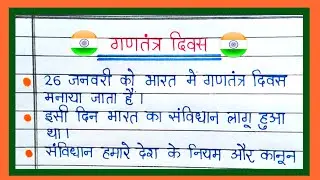 गणतंत्र दिवस
26 जनवरी को भारत में गणतंत्र दिवस
मनाया जाता हैं।
इसी दिन भारत का संविधान लागू हुआ
था।
संविधान हमारे देश के नियम और कानून